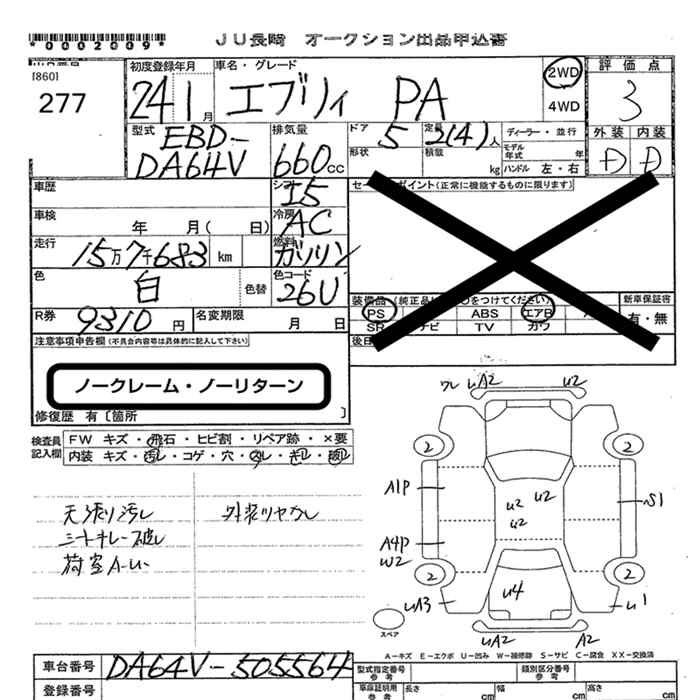 *0002009*
JU長崎 オークション出品申込書
[860]
277
初度登録年月
24 1月
車名・グレード
エブリィ PA
2WD
4WD
評価点
3
型式
EBD-
DA64V
排気量
660cc
ドア
5
定員
2(4)人
形状
積載
kg
ディーラー・並行
モデル年式 年
ハンドル 左・右
外装 内装
D D
車歴
シフト
I5
セールスポイント(正常に機能するものに限ります)
車検
年 月( 日)
冷房
AC
走行
15万7千683 km
燃料
ガソリン
色
白
色替
色コード
26U
装備品
PS ABS エアB
SR ナビ TV カワ
新車保証書
有・無
R券
9310円
名変期限
月 日
注意事項申告欄(不具合内容等は具体的に記入して下さい)
後日
ノークレーム・ノーリターン
修復歴 有〔箇所 〕
検査員記入欄
FW キズ・飛石・ヒビ割・リペア跡・×要
内装 キズ・汚レ・コゲ・穴・
天張り汚レ
シートキレ破レ
荷室A-U
外装ツヤなし
A2 U2
2 2
A1P
S1
U2 U2
U2
A4P
W2
2 2
U4
UA3
U1
スペア
UA2 A2
A-キズ E-エクボ U-凹み W-補修跡 S-サビ C-腐食 XX-交換済
車台番号
DA64V-505564
登録番号
型式指定番号
参考
類別区分番号
参考
車庫証明用
参考
長さ cm
幅 cm
高さ cm